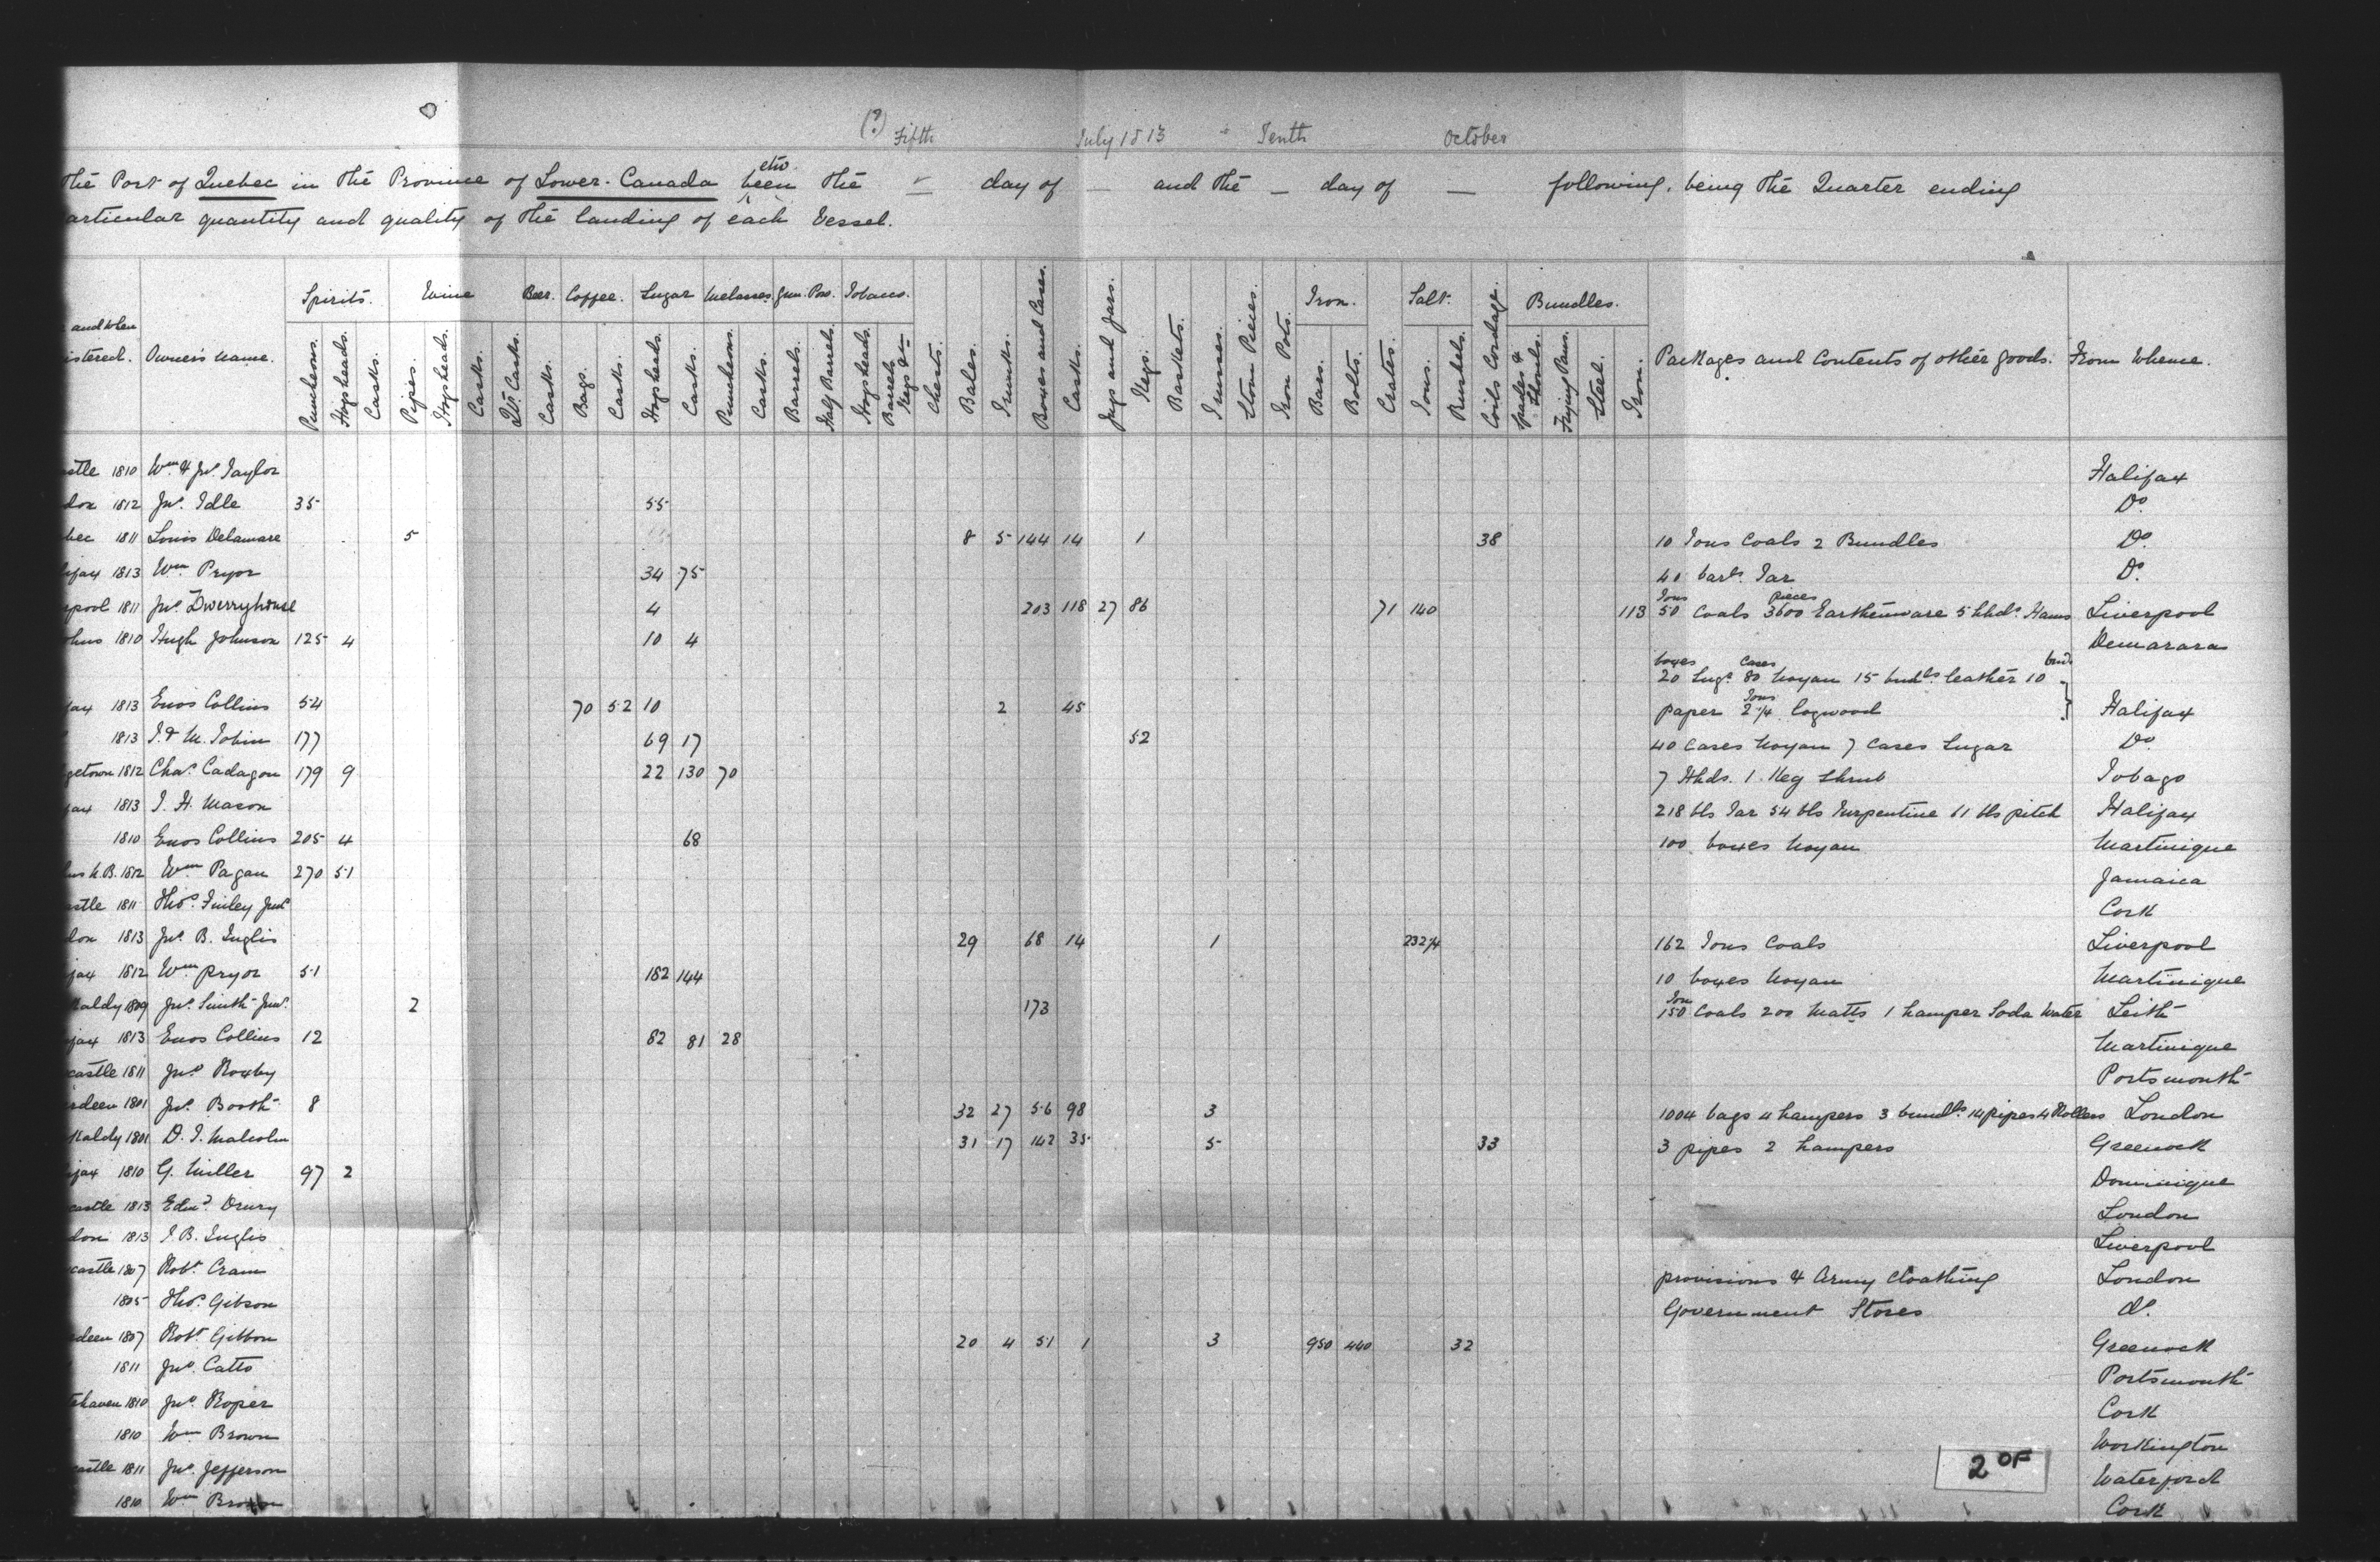 (?) Fifth July 1813 Tenth October
The Port of Quebec in the Province of Lower-Canada between the — day of — and the — day of — following, being the Quarter ending
articular quantity and quality of the landing of each Vessel.
Spirits. Wine Beer. Coffee. Sugar Melasses. Gun. Pow. Tobacco. Iron. Salt. Bundles.
and when
istered. Owner's name. Puncheons. Hogsheads. Casks. Pipes. Hogsheads. Casks. Qr. Casks. Casks. Bags. Casks. Hogsheads. Casks. Puncheons. Casks. Barrels. Half Barrels. Hogsheads. Barrels Kegs &c Chests. Bales. Trunks. Boxes and Cases. Casks. Jugs and Jars. Kegs. Baskets. Trusses. Stom Pieces. Iron Pots. Bars. Bolts. Crates. Tons. Bushels. Coils Cordage. Spades & Shovels. Frying Pans. Steel. Iron. Packages and Contents of other goods. From Whence.
astle 1810 Wm. & Jno. Taylor Halifax
don 1812 Jno. Idle 35 55 Do.
bec 1811 Louis Delamare 5 8 5 144 14 1 38 10 Tons Coals 2 Bundles Do.
ifax 1813 Wm Pryor 34 75 40 barls. Tar Do.
rpool 1811 Jno. Dwerryhouse 4 203 118 27 86 71 140 113 50 Tons Coals 3600 pieces Earthenware 5 hhds. Hams Liverpool
ohns 1810 Hugh Johnson 125 4 10 4 Demarara
20 boxes Sugr. 80 Cases Noyau 15 bndls leather 10 bnd.
fax 1813 Enos Collins 54 70 52 10 2 45 paper 2¼ Tons Logwood Halifax
1813 J. & M. Tobin 177 69 17 52 40 Cases Noyau 7 Cases Sugar Do.
getown 1812 Chas. Cadagon 179 9 22 130 70 7 Hhds. 1 Keg Shrub Tobago
fax 1813 J. H. Mason 218 bls Tar 54 bls Turpentine 61 bls pitch Halifax
1810 Enos Collins 205 4 68 100 boxes Noyau Martinique
ns N.B. 1812 Wm Pagan 270 51 Jamaica
astle 1811 Thos. Finley Junr Cork
don 1813 Jno. B. Inglis 29 68 14 1 232¼ 162 Tons Coals Liverpool
fax 1812 Wm Pryor 51 182 144 10 boxes Noyau Martinique
kaldy 1809 Jno. Smith Junr. 2 173 150 Ton Coals 200 Matts 1 hamper Soda Water Leith
ifax 1813 Enos Collins 12 82 81 28 Martinique
castle 1811 Jno. Roxby Portsmouth
rdeen 1801 Jno. Booth 8 32 27 56 98 3 1004 bags 4 hampers 3 bundls. 14 pipes 4 Rollers London
kaldy 1801 D. J. Malcolm 31 17 142 35 5 33 3 pipes 2 hampers Greenock
ifax 1810 G. Miller 97 2 Dominique
castle 1813 Edmd. Drury London
don 1813 J. B. Inglis Liverpool
castle 1807 Robt. Cram provisions & Army Cloathing London
1805 Thos. Gibson Government Stores do.
rdeen 1807 Robt. Gibbon 20 4 51 1 3 950 440 32 Greenock
1811 Jno. Catto Portsmouth
tehaven 1810 Jno. Roper Cork
1810 Wm Brown Workington
castle 1811 Jno. Jefferson Waterford
1810 Wm Brown Cork
2 OF